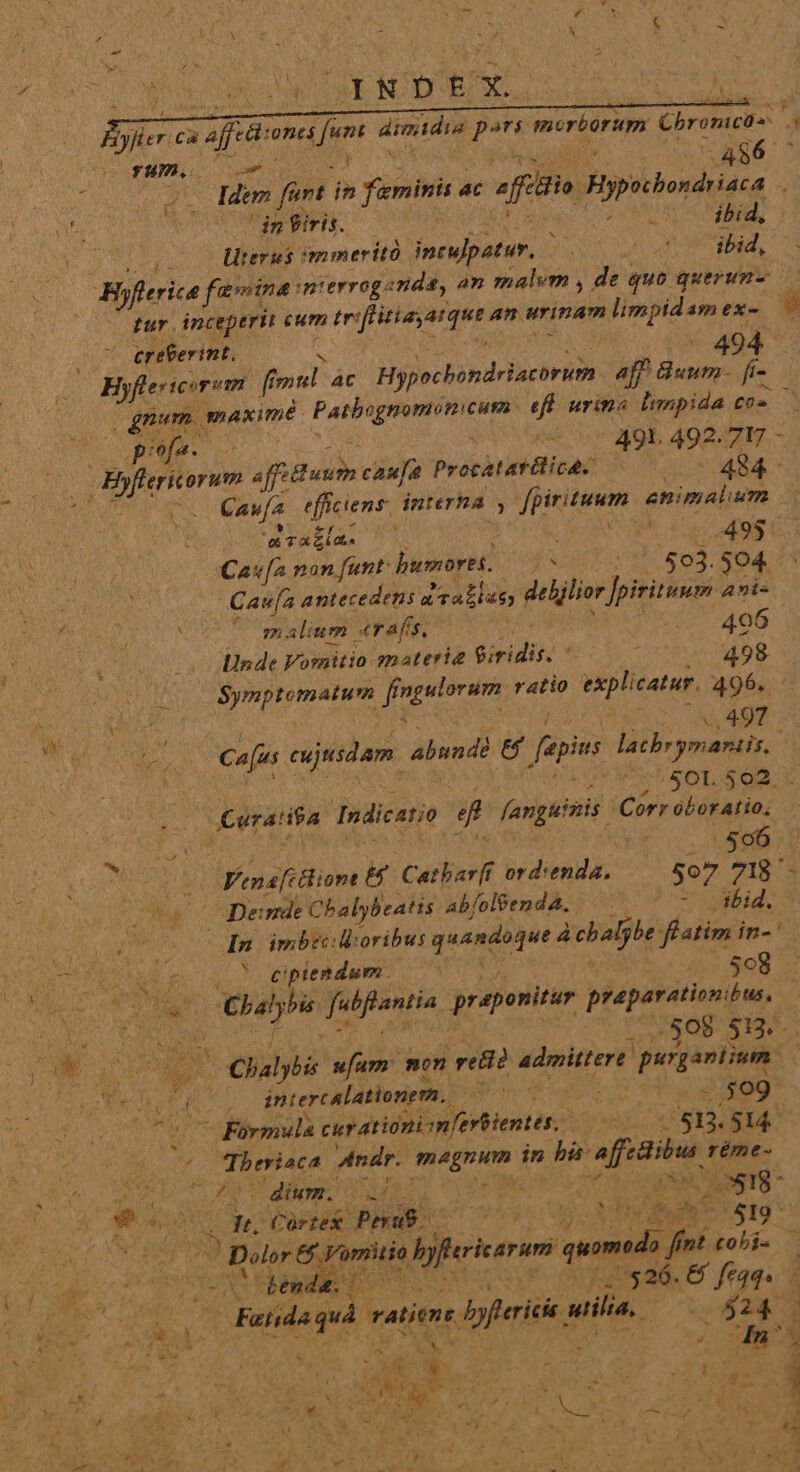 INDEX.
Hysterica affectiones sunt dimidia pars morborum Chronico-
rum. 486
Idem sunt in fæminis ac affectio Hypochondriaca
in viris. ibid.
Uterus immeritò inculpatur. ibid.
Hysterica fæmina interroganda, an malum, de quo querun-
tur inceperit cum tristitia, atque an urinam limpidam ex-
creverint. 494
Hystericorum simul ac Hypochondriacorum affectuum si-
gnum maximè Pathognomonicum est urina limpida co-
piosa. 491. 492. 717
Hystericorum affectuum causa Procatarctica. 484
Causa efficiens interna, spirituum animalium
ἀταξία. 495
Causa non sunt humores. 503. 504
Causa antecedens ἀταξίας, debilior spirituum ani-
malium crasis. 496
Unde Vomitio materiæ viridis. 498
Symptomatum singulorum ratio explicatur. 496.
497
Casus cujusdam abundè & sæpius lachrymantis.
501. 502
Curativa Indicatio est sanguinis Corroboratio.
506
Venæsectione & Catharsi ordienda. 507 718
Deinde Chalybeatis absolvenda. ibid.
In imbecillioribus quandoque à chalybe statim in-
cipiendum. 508
Chalybis substantia præponitur præparationibus.
508 513.
Chalybis usum non rectè admittere purgantium
intercalationem. 509
Formula curationi inservientes. 513. 514
Theriaca Andr. magnum in his affectibus reme-
dium. 518
It. Cortex Peruv. 519
Dolor & Vomitio hystericarum quomodo sint cohi-
benda. 526. & seqq.
Fœtida quâ ratione hystericis utilia. 524
In